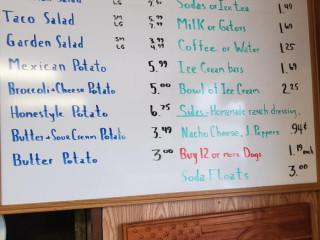 Taco Salad SM LG
Garden Salad SM LG 3.99 4.99
Mexican Potato 5.99
Broccoli + Cheese Potato 5.00
Homestyle Potato 6.75
Butter + Sour Cream Potato 3.49
Butter Potato 3.00
Sodas or Ice Tea 1.49
Milk or Gators 1.69
Coffee or Water 1.25
Ice Cream bars 1.69
Bowl of Ice Cream 2.25
Sides - Homemade ranch dressing,
Nacho Cheese, J. Peppers 94¢
Buy 12 or more Dogs 1.19 each
Soda Floats 3.00